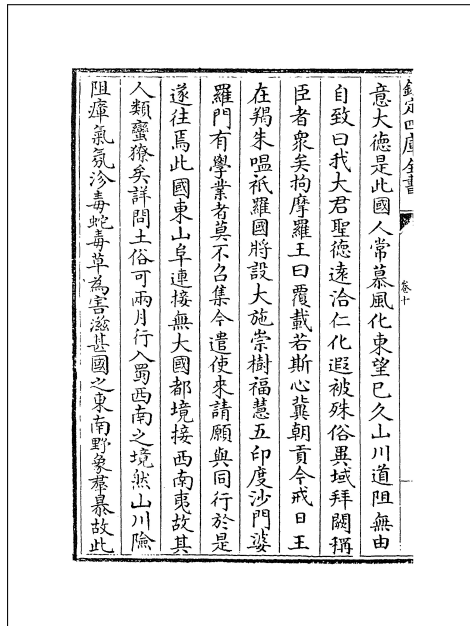 欽定四庫全書
卷十
意大徳是此國人常慕風化東望已久山川道阻無由
自致曰我大君聖徳逺洽仁化遐被殊俗異域拜闕稱
臣者衆矣拘摩羅王曰覆載若斯心冀朝貢今戒日王
在羯朱嗢祇羅國將設大施崇樹福慧五印度沙門婆
羅門有學業者莫不召集今遣使來請願與同行於是
遂往焉此國東山阜連接無大國都境接西南夷故其
人類蠻獠矣詳問土俗可兩月行入蜀西南之境然山川險
阻瘴氣氛沴毒蛇毒草為害滋甚國之東南野象羣暴故此